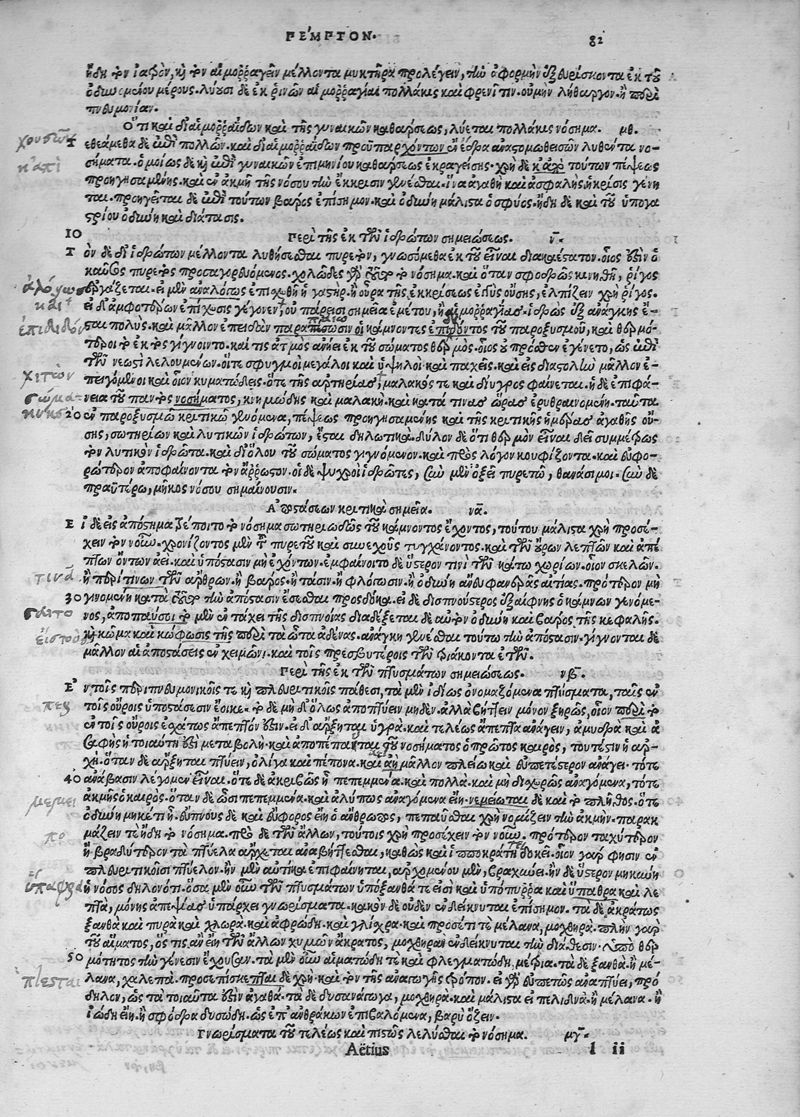 ΠΕΜΠΤΟΝ. 82
ἤδη τὸν ἰατρὸν, καὶ τὸν αἱμοῤῥαγεῖν μέλλοντα μυκτῆρα προλέγειν, τὴν ἀφορμὴν ἐξευρίσκοντα ἐκ τοῦ
ὀδυνωμένου μέρους. λύουσι δὲ ἐκ ῥινῶν αἱμοῤῥαγίαι πολλάκις καὶ φρενῖτιν. οὐ μὴν λήθαργον. ἢ περι
πνευμονίαν.
Ὅτι καὶ δι' αἱμοῤῥοΐδων καὶ τῆς γυναικῶν καθάρσεως, λύεται πολλάκις νόσημα. μθ.
Τεθεάμεθα δὲ ἐπὶ πολλῶν. καὶ δι' αἱμοῤῥοΐδων προϋπαρχόντων ἐν ἕδρᾳ ἀναστομωθεισῶν λυθέντα νο-
σήματα. ὁμοίως δὲ καὶ ἐπὶ γυναικῶν ἐπιμηνίου καθάρσεως ἐκραγείσης. χρὴ δὲ κἀπὸ τούτων πέψεως
προηγησαμένης. καὶ ἐν ἀκμῇ τῆς νόσου τὴν ἔκκρισιν γενέσθαι. ἵνα ἀγαθὴ καὶ ἀσφαλὴς ἡ κρίσις γένη
ται. προηγεῖται δὲ ἐπὶ τούτων βάρος ἐπίσημον. καὶ ὀδύνη μάλιστα ὀσφύος. ἤδη δὲ καὶ τοῦ ὑπογα
στρίου ὀδύνη καὶ διάτασις.
10 Περὶ τῆς ἐκ τῶν ἱδρώτων σημειώσεως. ν.
Τὸν δὲ δι' ἱδρώτων μέλλοντα λυθήσεσθαι πυρετὸν, γνωσόμεθα ἐκ τοῦ εἶναι διακαέστατον. οἷος ἐστὶν ὁ
καῦσος πυρετὸς προσαγορευόμενος. χολῶδες γὰρ ἐστὶ τὸ νόσημα. καὶ ὅταν σφοδρῶς κινηθῇ, ῥῖγος
ἐργάζεται. εἰ μὲν ἀναλόπως ἐπισχεθῇ ἡ γαστὴρ, ἢ οὖρα τῆς ἐκκρίσεως ἐγγὺς οὔσης, ἐλπίζειν χρὴ ῥῖγος.
εἰ δ' ἀμφοτέρων ἐπίσχυσις γέγονεν, οὐ πάρεισι σημεῖα ἐμέτου, ἢ αἱμοῤῥαγίας. ἱδρὼς ἐξ ἀνάγκης ἔ-
σται πολύς. καὶ μᾶλλον ἐπειδὰν παραπίσωσιν οἱ κάμνοντες ἐπιόντος τοῦ παροξυσμοῦ, καὶ θερμό-
τεροι τὰ ἐκτὸς γίγνοιντο. καί τις ἀτμὸς ἀνίει ἐκ τοῦ σώματος θερμὸς. οἷος οὐ πρόσθεν ἐγένετο, ὡς ἐπὶ
τῶν νεωστὶ λελουμένων. οἵ τε σφυγμοὶ μεγάλοι καὶ ὑψηλοὶ καὶ παχεῖς. καὶ εἰς διαστολὴν μᾶλλον ἐ-
πειγόμενοι καὶ οἷον κυματώδεις. ὅτε τῆς ἀρτηρίας, μαλακός τε καὶ δίυγρος φαίνεται. ἡ δὲ ἐπιφά-
νεια τοῦ παντὸς νοσήματος, κινημώδης καὶ μαλακὴ. καὶ κατά τινας ὥρας ἐρυθραινομένη. ταῦτα
20 ἐν παροξυσμῷ κριτικῷ γενόμενα, πέψεως προηγησαμένης καὶ τῆς κριτικῆς ἡμέρας ἀγαθῆς οὔ-
σης, σωτηρίων καὶ λυτικῶν ἱδρώτων, ἔσται δηλωτικὰ. δῆλον δὲ ὅτι θερμὸν εἶναι δεῖ συμμέτρως
τὸν λυτικὸν ἱδρῶτα. καὶ δι' ὅλου τοῦ σώματος γιγνόμενον. καὶ πρὸς λόγον κουφίζοντα. καὶ εὐφο-
ρώτερον ἀποφαίνοντα τὸν ἄῤῥωστον. οἱ δὲ ψυχροὶ ἱδρῶτες, σὺν μὲν ὀξεῖ πυρετῷ, θανάσιμοι. σὺν δὲ
πραϋτέρῳ, μῆκος νόσου σημαίνουσιν.
Ἀποστάσεων κριτικὰ σημεῖα. να.
Εἰ δὲ εἰς ἀπόστημα τρέποιτο τὸ νόσημα σωτηριωδῶς τοῦ κάμνοντος ἔχοντος, τούτου μάλιστα χρὴ προσέ-
χειν τὸν νοῦν. χρονίζοντος μὲν τοῦ πυρετοῦ καὶ συνεχοῦς τυγχάνοντος. καὶ τῶν οὔρων λεπτῶν καὶ ἀπέ-
πτων ὄντων ἀεὶ. καὶ ὑπόστασιν μὴ ἐχόντων. ἐμφαίνοιτο δὲ ὕστερόν τινι τῶν κάτω χωρίων. οἷον σκελῶν.
ἢ περὶ τίνων τῶν ἄρθρων. ἢ βάρος. ἢ τάσιν. ἢ φλόγωσιν. ἢ ὀδύνη ἄνευ φανερᾶς αἰτίας. πρότερον μὴ
30 γινομένη κατὰ ταῦτα τὴν ἀπόστασιν ἔσεσθαι προσδόκα. εἰ δὲ δισπνούστερος ἐξαίφνης ὁ κάμνων γενόμε-
νος, ἀποπαύσοι τὸ μὲν ἐν τάχει τῆς δισπνοίας διαδέξεται δὲ αὐτὸν ὀδύνη καὶ βάρος τῆς κεφαλῆς.
καὶ κῶμα καὶ κώφωσις τῆς περὶ τὰ ὦτα ἀδένας. ἀνάγκη γενέσθαι τούτῳ τὴν ἀπόστασιν. γίγνονται δὲ
μᾶλλον αἱ ἀποστάσεις ἐν χειμῶνι. καὶ τοῖς πρεσβυτέροις τῶν τριάκοντα ἐτῶν.
Περὶ τῆς ἐκ τῶν πτυσμάτων σημειώσεως. νβ.
Ἐν τοῖς περιπνευμονικοῖς τε καὶ πλευριτικοῖς πάθεσι, τὰ μὲν ἰδίως ὀνομαζόμενα πτύσματα, ταῖς ἐν
τοῖς οὔροις ὑποστάσεσιν ἔοικε. τὸ δὲ μηδ' ὅλως ἀποπτύειν μηδὲν. ἀλλὰ βήττειν μόνον ξηρῶς, οἷον περὶ τὸ
ἐν τοῖς οὔροις ἐσχάτως ἄπεπτόν ἐστιν. εἰ δ' ἄρξηται ὑγρὰ. καὶ τελέως ἄπεπτα ἀνάγειν, ἀμυδρὰ καὶ ἀ
σαφὴς ἡ τοιαύτη ἐστὶ μεταβολὴ. καὶ ἀποπέπανται τοῦ νοσήματος ὁ πρῶτος καιρὸς, τουτέστιν ἡ ἀρ-
χὴ. ὅταν δὲ ἄρξηται πτύειν, ὀλίγα καὶ πέπονα. καὶ ἀεὶ μᾶλλον πλείω καὶ εὐπετέστερον ἀνάγει. τότε
40 ἀνάβασιν λέγομεν εἶναι. ὅτε δὲ ἀκριβῶς ἢ πεπεμμένα. καὶ πολλὰ. καὶ μὴ δυσχερῶς ἀναγόμενα, τότε
ἀκμῆς ὁ καιρὸς. ὅταν δὲ ὦσι πεπεμμένα. καὶ ἀλύπως ἀναγόμενα εἴη. νεμείωται δὲ καὶ τὸ πλῆθος. ὅτε
ὀδύνη μηκέτι ἢ. εὔπνους δὲ καὶ εὔφορος εἴη ὁ ἄνθρωπος, πεπαῦσθαι χρὴ νομίζειν τὴν ἀκμὴν. παρακ
μάζειν τε ἤδη τὸ νόσημα. πρὸ δὲ τῶν ἄλλων, τούτοις χρὴ προσέχειν τὸν νοῦν. πρότερον ταχύτερον
ἢ βραδύτερον τὰ πτύελα ἄρχεται ἀναβήττεσθαι, καθὼς καὶ ἱπποκράτῃ δοκεῖ. οἷον γάρ φησιν ἐν
πλευριτικοῖσι πτύελον. ἢν μὲν αὐτίκα ἐπιφαίνηται, ἀρχομένου μὲν, βραχύνει. ἢν δὲ ὕστερον μηκύνῃ
ἡ νόσος δηλονότι. ὅσα μὲν οὖν τῶν πτυσμάτων ὑπόξανθά τε εἰσὶ καὶ ὑπόπυῤῥα καὶ ὕπαθρα καὶ λε
πτὰ, μόνης ἀπεψίας ὑπάρχει γνωρίσματα. κακὸν δὲ οὐδὲν ἐνδείκνυται ἐπίσημον. τὰ δὲ ἀκράτως
ξανθὰ καὶ πυρὰ καὶ χλωρὰ. καὶ ἀφρώδη. καὶ γλίσχρα. καὶ προσέτι τε μέλανα, μοχθηρὰ. πλὴν γὰρ
τοῦ αἵματος, ὅστις ἂν εἴη τῶν ἄλλων χυμῶν ἄκρατος, μοχθηρὰν ἐνδείκνυται τὴν διάθεσιν. ἀπὸ θερ
50 μότητος τὴν γένεσιν ἔχουσιν. τὰ μὲν οὖν αἱματώδη τε καὶ φλεγματώδη, μέτρια. τὰ δὲ ξανθὰ ἢ μέ-
λανα, χαλεπὰ. προσεπισκεπτῆται δὲ χρὴ. καὶ τὸν τῆς ἀναγωγῆς τρόπον. εἰ γὰρ εὐπετῶς ἀναπτύει, πρό
δηλον, ὡς τὰ τοιαῦτά ἐστιν ἀγαθὰ. τὰ δὲ δυσανάγωγα, μοχθηρὰ. καὶ μάλιστα εἰ πελιδνὰ. ἢ μέλανα. ἢ
ἰώδη εἴη. ἢ σφόδρα δυσώδη. ὡς ἐπ' ἀνθράκων ἐπιβαλόμενα, βαρὺ ὄζειν.
Γνωρίσματα τοῦ τελέως καὶ πιστῶς λελύσθαι τὸ νόσημα. νγ.
Aëtius l ii